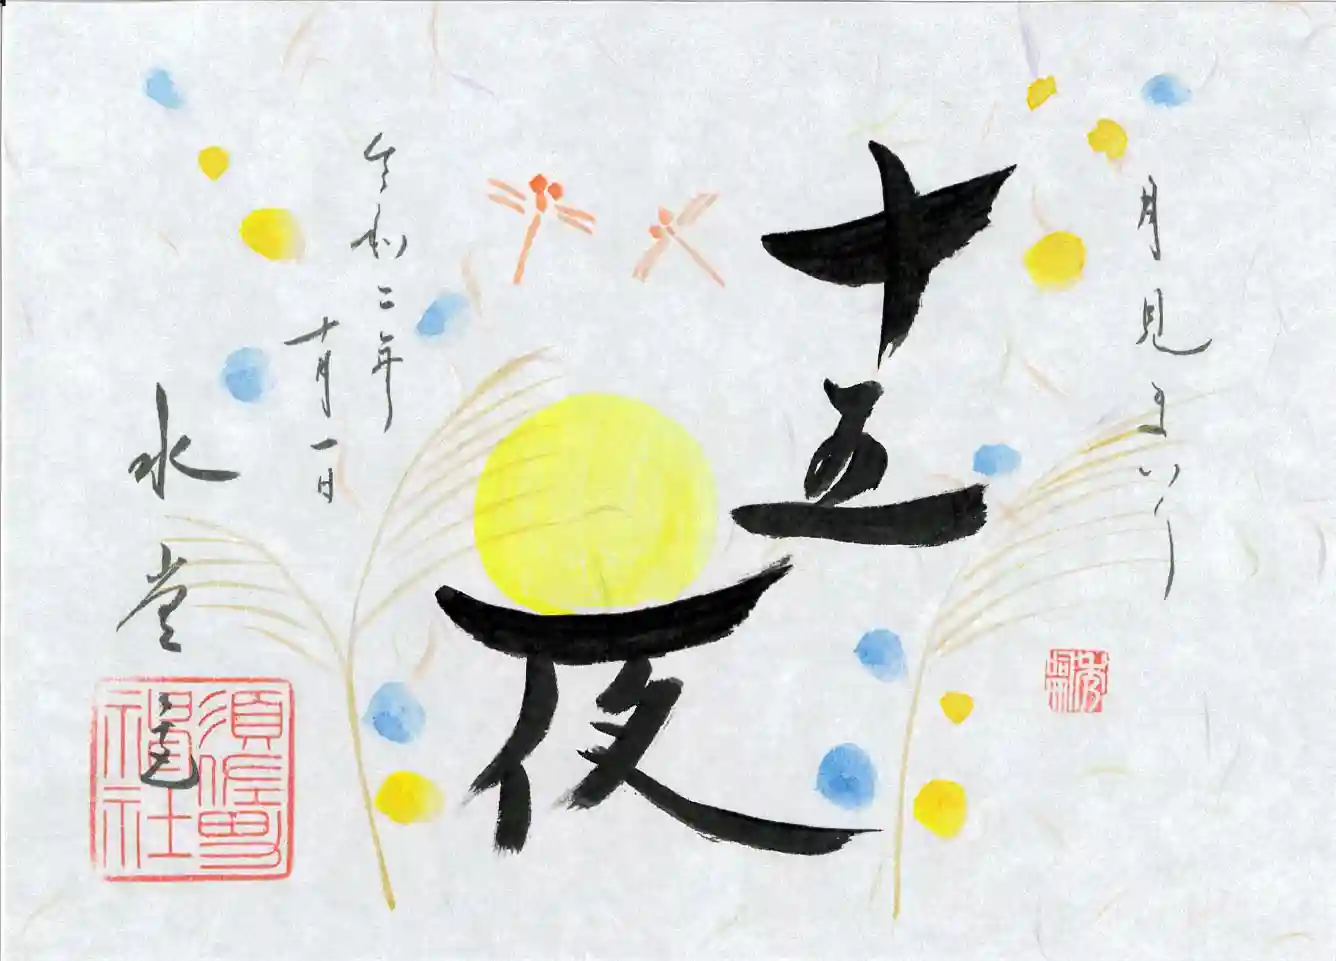 月見まいり
十五
夜
令和二年
十月一日
水堂
須佐男
神社